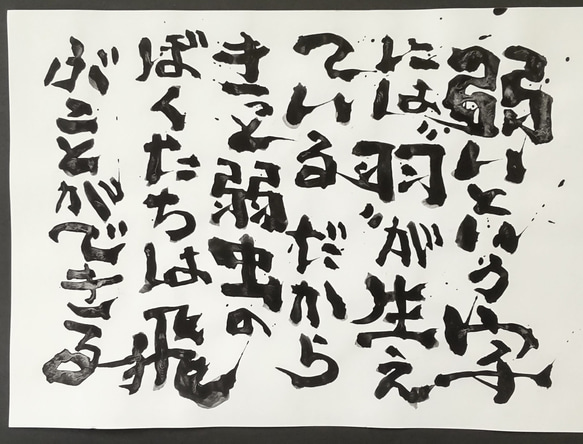 弱いという字
には羽が生え
ている だから
きっと弱虫の
ぼくたちは飛
ぶことができる